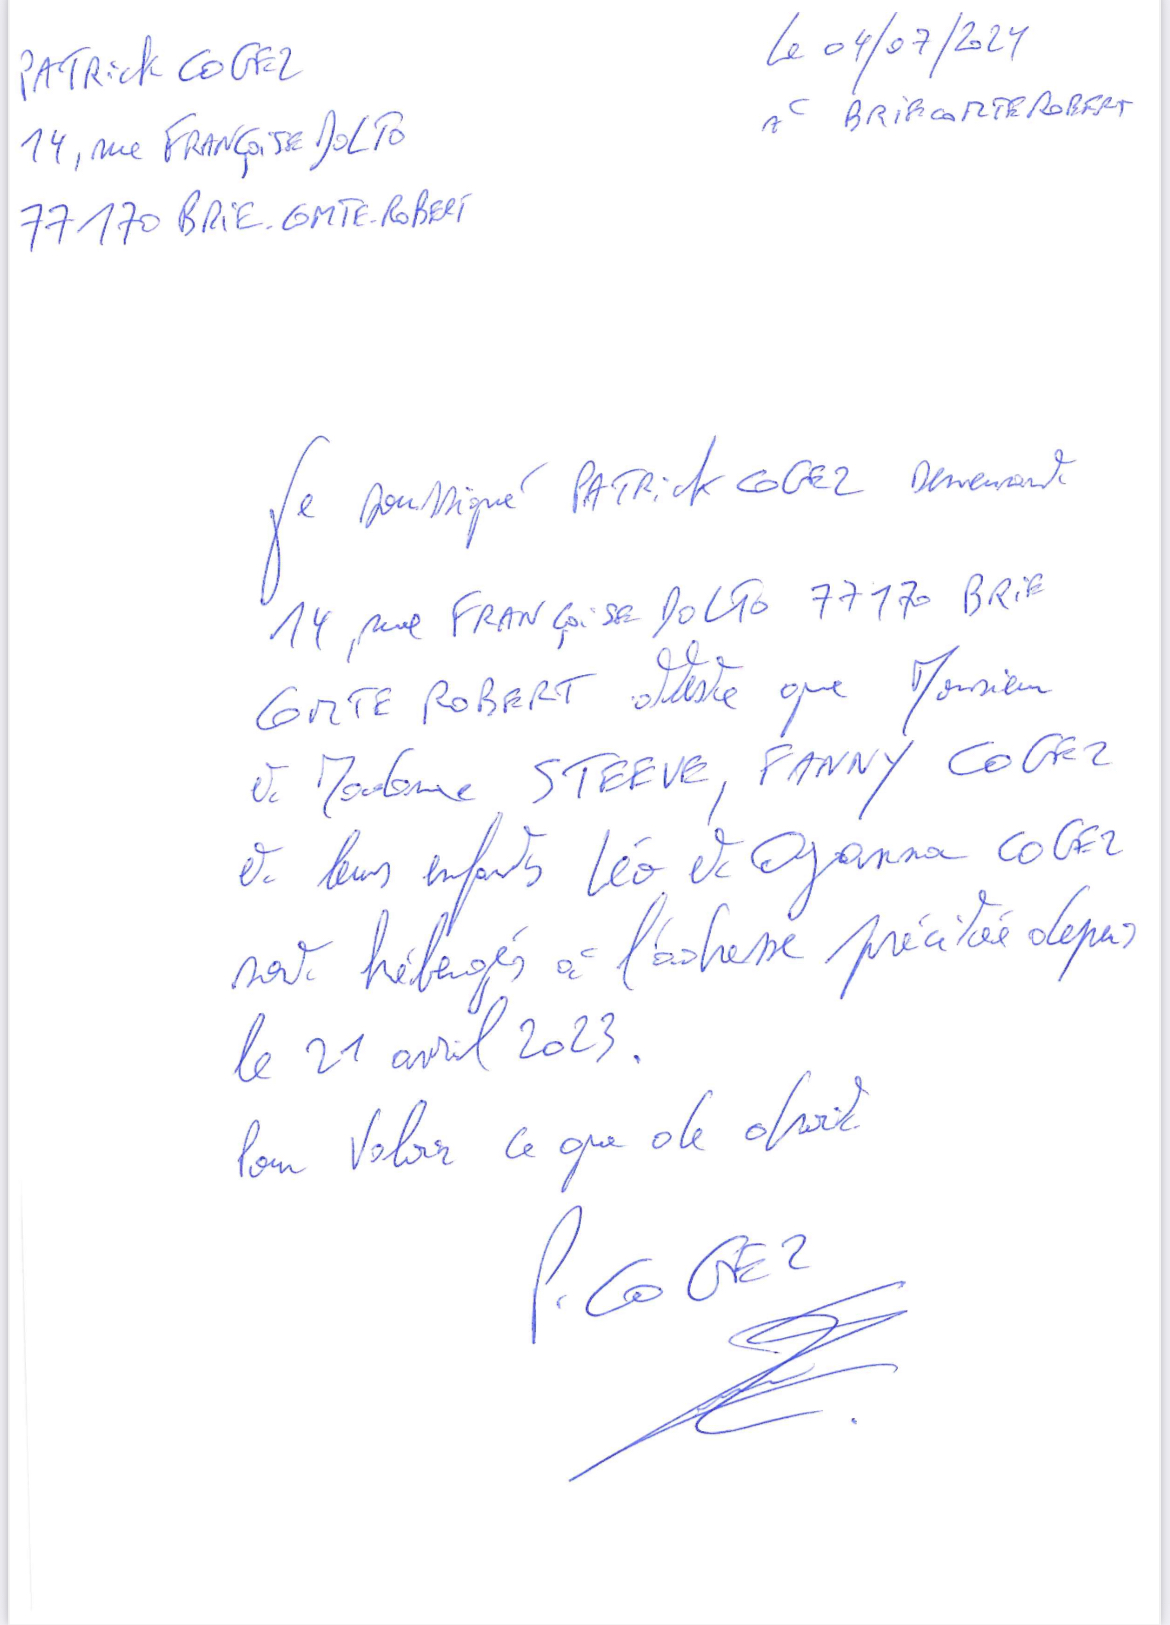 PATRick COGEZ
14, rue FRANÇOiSE DOLTO
77170 BRiE-COMTE-ROBERT
Le 04/07/2024
à BRIE COMTE ROBERT
Je soussigné PATRicK COGEZ demeurant
14, rue FRANÇOiSE DOLTO 77170 BRiE
COMTE ROBERT atteste que Monsieur
et Madame STEEVE, FANNY COGEZ
et leurs enfants Léo et Oyanna COGEZ
sont hébergés à l'adresse précitée depuis
le 21 avril 2023.
Pour Valoir ce que de droit
P. COGEZ